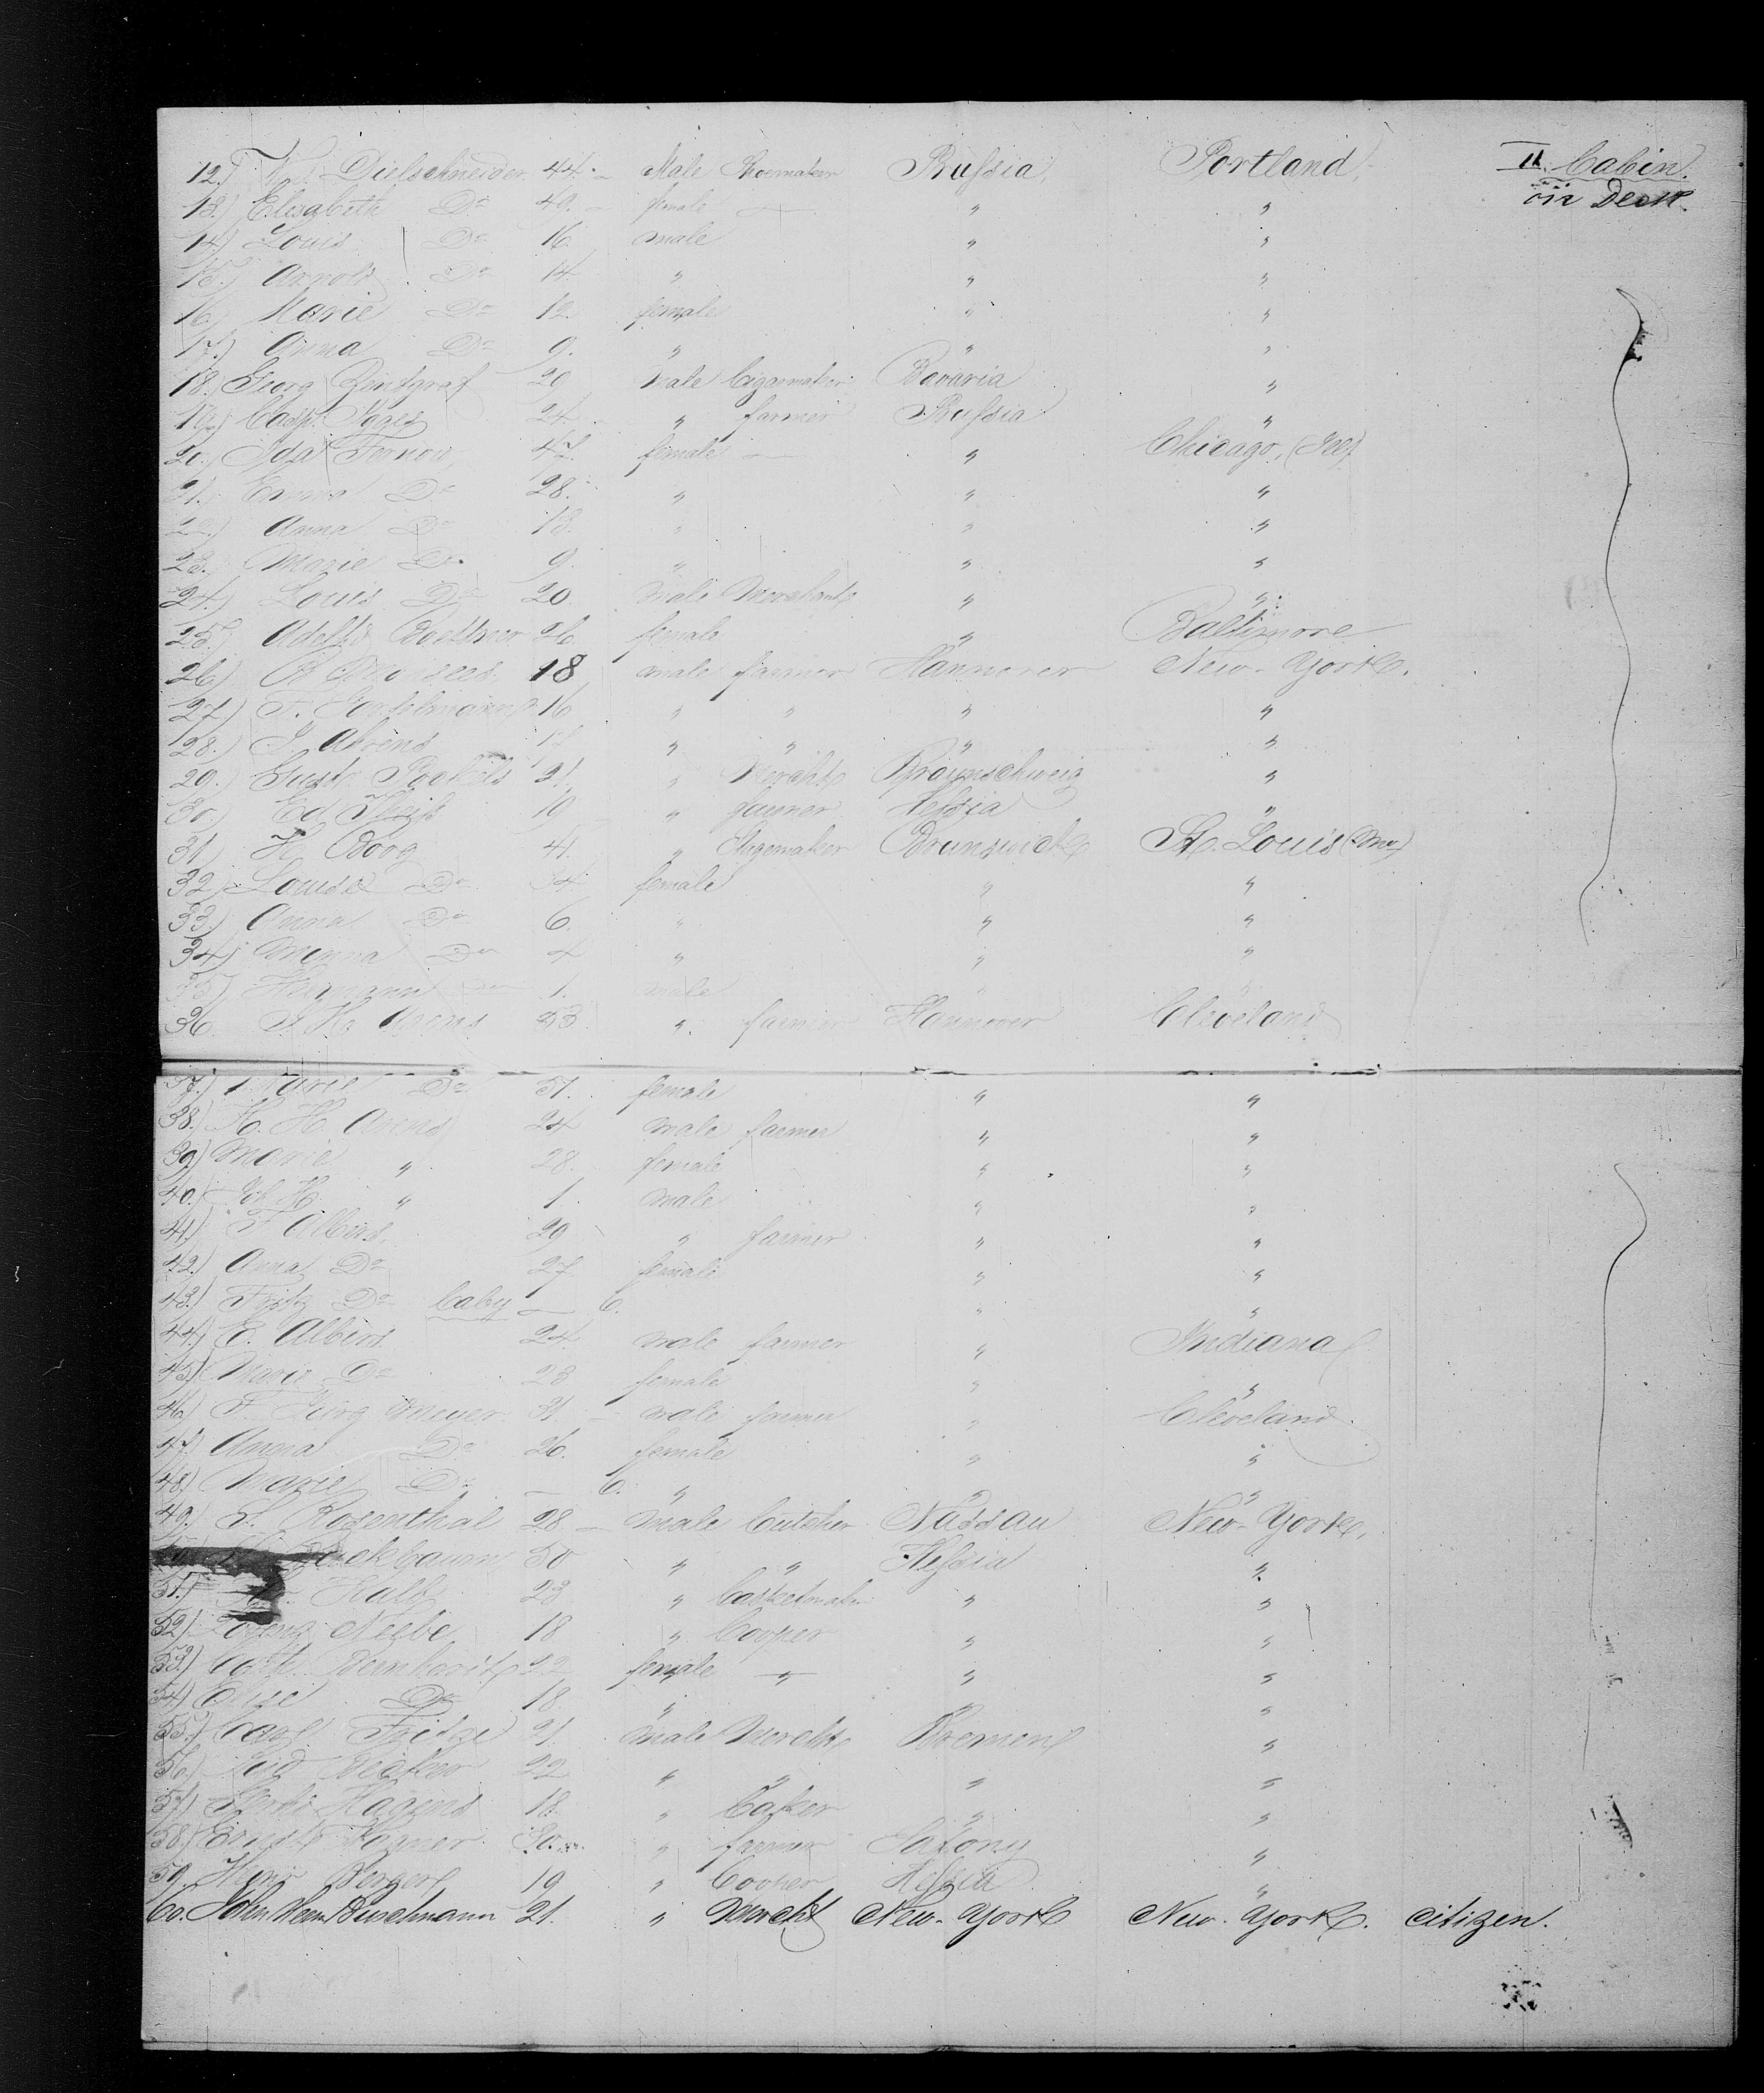 12.) W. Dielschneider 44. — Male Shoemaker Prussia, Portland, II. Cabin.
13.) Elisabeth Do 49. — female — " " on Deck.
14) Louis Do 16. male " "
15.) Arnold Do 14 " " "
16.) Marie Do 12. female " "
17.) Anna Do 9. " " "
18. Georg Zindgraf 29 Male Cigarmaker Bavaria "
19.) Casp. 24. " farmer Prussia "
20.) Ida 47. female — " Chicago, (Ill)
21. Emma Do 28. " " "
22.) Anna Do 18. " " "
23. Marie Do. 9. " " "
24.) Louis Do 20 Male Merchant " "
25.) 26 female " Baltimore
26) 18 male farmer Hannover New-York.
27.) F. 16 " " " "
28.) J. Ahrens " " " "
29.) Gust. 21. " Mercht Braunschweig "
30.) Ed. 19 " farmer Hessia "
31) H. 41. " Shoemaker Brunswick St. Louis (Mo)
32.) Louise Do 34 female " "
33.) Anna Do 6. " " "
34) Minna Do 4 " " "
35) Hermann Do 1. male " "
36. Arens 53. " farmer Hannover Cleveland
37.) Marie Do 51. female " "
38.) H. H. Arens 24 male farmer " "
39) Marie " 28. female " "
40.) Joh. H. " 1. male " "
41.) F. Albers. 29 " farmer " "
42.) Anna Do 27 female " "
43.) Fritz Do baby — 6. " "
44.) E. Albers 24 male farmer " Indiana
45) Marie Do 23 female " "
46) F. Meyer 31 — male farmer " Cleveland.
47.) Anna Do 26. female " "
48) Marie Do — 6. " " "
49.) S. Rosenthal 28 — male butcher Nassau New-York,
50 " " Hessia "
51.) Kalb 23 " Basketmaker " "
52) 18 " Cooper " "
53.) 22 female — " "
54) Elise Do 18. " "
55.) Carl Fritze 21. male Mercht Bremen "
56.) 22 " " " "
57) Hagens 18. " baker " "
58.) Ernst Wagner 20. " farmer Saxony "
59. Berger 19 " Cooper Hessia "
60. John Herm Buschmann 21. " Mercht New-York New-York. citizen.